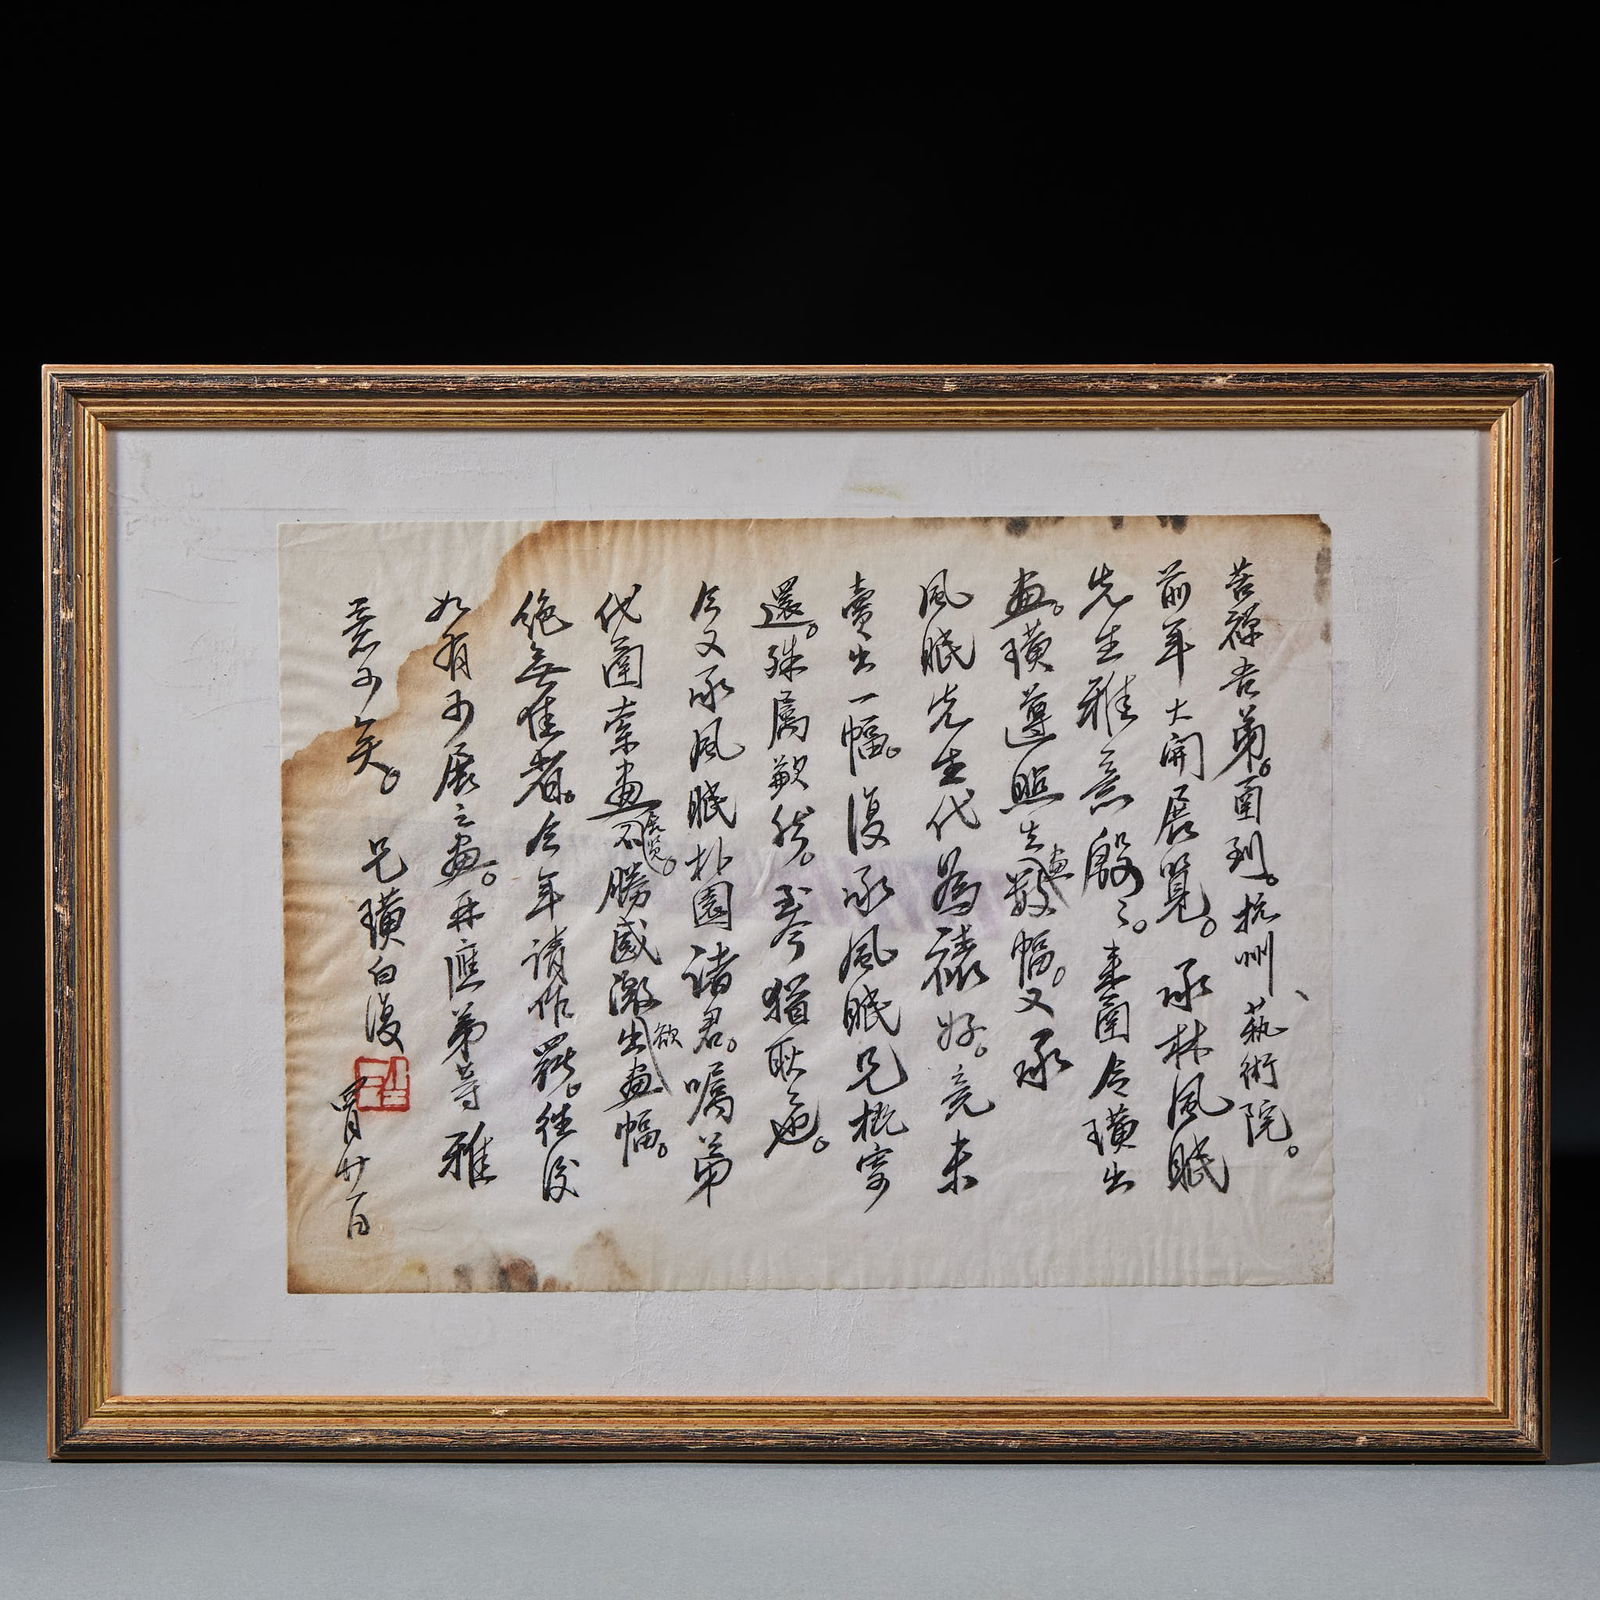 苦禪吾弟。函到。杭州藝術院。
前年大開展覽。承林風眠
先生雅意殷々。来函令璜出
畫。璜遵照去畫數幅。又承
風眠先生代為裱好。竟未
賣出一幅。復承風眠兄概寄
還。殊属歉然。至今猶耿也。
今又承風眠朴園諸君。囑弟
代函索畫展覽。不勝感激欲出畫幅。
絶無佳者。今年請作罷。往後
如有可展之畫。再應弟等雅
意可矣。 兄璜白復
四月廿一日